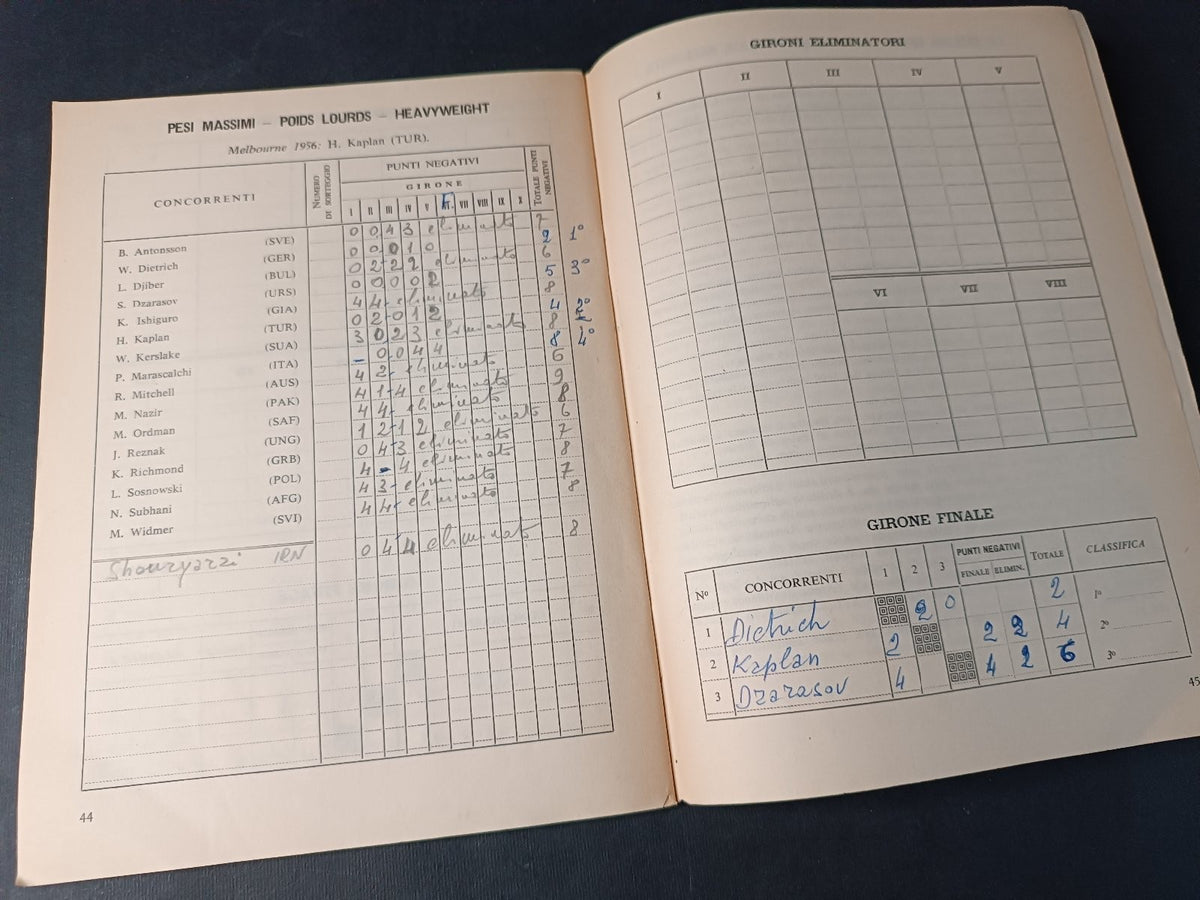 PESI MASSIMI — POIDS LOURDS — HEAVYWEIGHT
Melbourne 1956: H. Kaplan (TUR).
CONCORRENTI NUMERO DI SORTEGGIO PUNTI NEGATIVI TOTALE PUNTI NEGATIVI
GIRONE
I II III IV V F. VII VIII IX X
B. Antonsson (SVE) 0 0 4 3 eliminato 7
W. Dietrich (GER) 0 0 0 1 0 2 1°
L. Djiber (BUL) 0 2 2 2 eliminato 6
S. Dzarasov (URS) 0 0 0 0 2 5 3°
K. Ishiguro (GIA) 4 4 eliminato 8
H. Kaplan (TUR) 0 2 0 1 2 4 2°
W. Kerslake (SUA) 3 0 2 3 eliminato 8
P. Marascalchi (ITA) – 0 0 4 4 8 4°
R. Mitchell (AUS) 4 2 eliminato 6
M. Nazir (PAK) 4 1 4 eliminato 9
M. Ordman (SAF) 4 4 eliminato 8
J. Reznak (UNG) 1 2 1 2 eliminato 6
K. Richmond (GRB) 0 4 3 eliminato 7
L. Sosnowski (POL) 4 - 4 eliminato 8
N. Subhani (AFG) 4 3 eliminato 7
M. Widmer (SVI) 4 4 eliminato 8
IRN 0 4 4 eliminato 8
44
GIRONI ELIMINATORI
I II III IV V
VI VII VIII
GIRONE FINALE
Nº CONCORRENTI 1 2 3 PUNTI NEGATIVI TOTALE CLASSIFICA
FINALE ELIMIN.
1 Dietrich 2 0 2 1º
2 Kaplan 2 2 2 4 2º
3 Dzarasov 4 4 2 6 3º
45